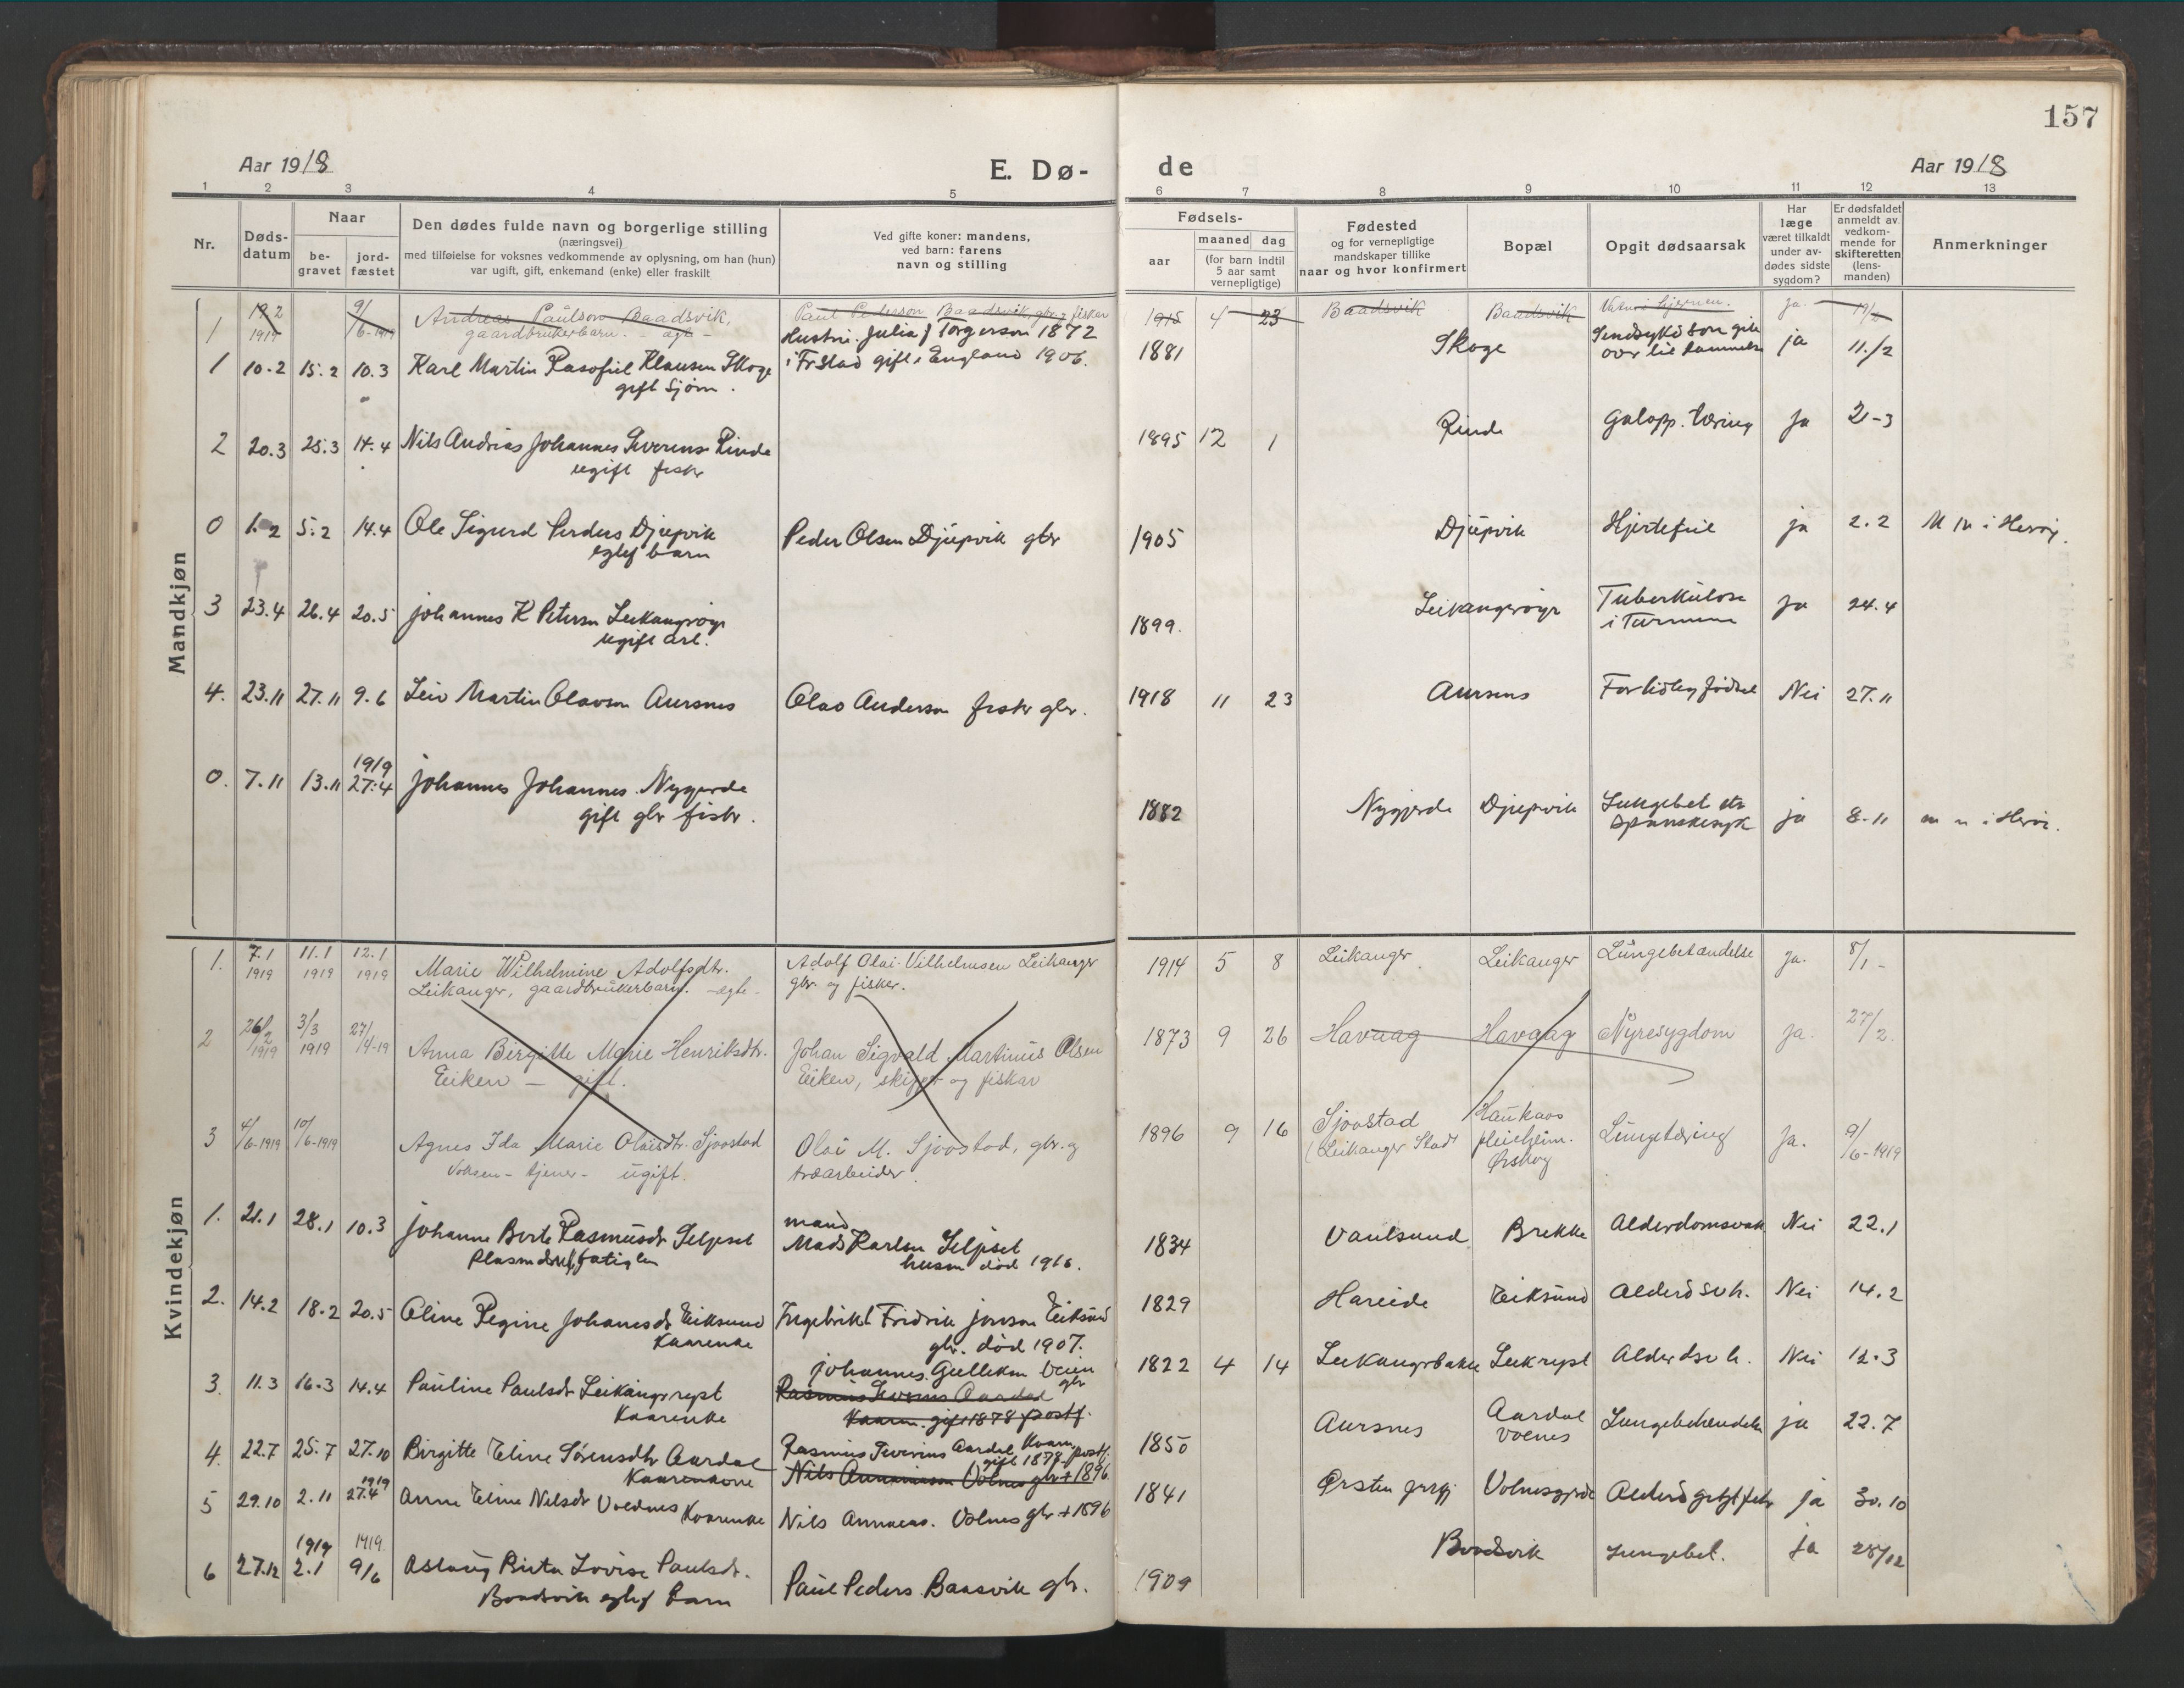 157
Aar 1918
E. Dø-
de
Aar 1918
1 2 3 4 5 6 7 8 9 10 11 12 13
Nr.
Døds-
datum
Naar
be-
gravet
jord-
fæstet
Den dødes fulde navn og borgerlige stilling
(næringsvei)
med tilføielse for voksnes vedkommende av oplysning, om han (hun)
var ugift, gift, enkemand (enke) eller fraskilt
Ved gifte koner: mandens,
ved barn: farens
navn og stilling
Fødsels-
aar
maaned dag
(for barn indtil
5 aar samt
vernepligtige)
Fødested
og for vernepligtige
mandskaper tillike
naar og hvor konfirmert
Bopæl
Opgit dødsaarsak
Har
læge
været tilkaldt
under av-
dødes sidste
sygdom?
Er dødsfaldet
anmeldt av
vedkom-
mende for
skifteretten
(lens-
manden)
Anmerkninger
Mandkjøn
1 19/2 1919 9/6-1919 Andreas Paulson Baadsvik, Paul Pederson Baadsvik, gbr. og fisker 1915 4 23 Baadsvik Baadsvik Vatn i hjernen. ja. 19/2
gaardbrukerbarn. - egte -
Hustru: Julia J Torgerson 1872
1 10.2 15.2 10.3 Karl Martin Rasofiel Klausen Skoge i Frstad gift i England 1906. 1881 Skoge ja 11/2
gift sjøm.
2 20.3 25.3 14.4 Nils Andrias Johannes Severens Rinde 1895 12 1 Rinde galopp. tæring Ja 21-3
ugift fisker
0 1.2 5.2 14.4 Ole Sigurd Perders Djupvik Peder Olsen Djupvik gbr 1905 Djupvik Hjertefeil ja 2.2 M m i Herøy.
egtef barn
3 23.4 26.4 20.5 Johannes K Peterson Leikangrøyr 1899. Leikangerøyr Tuberkulose ja 24.4
ugift arb. i Tarmene
4. 23.11 27.11 9.6 Leiv Martin Olavson Aursnes Olav Anderson fisker gbr. 1918 11 23 Aursnes For tidleg fødsel Nei 27.11
1919
0. 7.11 13.11 27.4 Johannes Johannes. Nygjerde 1882 Nygjerde Djupvik Lungebet etr ja 8-11 m n i Herøy.
gift gbr fisker. Spanskesyk
Kvindekjøn
1. 7.1 1919 11.1 1919 12.1 1919 Marie Wilhelmine Adolfsdtr. Adolf Olai Vilhelmsen Leikanger 1914 5 8 Leikanger Leikanger Lungebetændelse Ja. 8/1-
Leikanger, gaardbrukerbarn. -egte- gbr. og fisker.
2 26/2 1919 3/3 1919 27/4-19 Anna Birgitte Marie Henriksdtr. Johan Sigvald Martinus Olsen 1873 9 26 Havaag Havaag Nyresygdom ja. 27/2
Eiken - gift. Eiken, skiper og fiskar
3 4/6-1919 10/6-1919 Agnes Ida Marie Olaisdtr. Sjoostad Olai M. Sjoostad, gbr. og 1896 9 16 Sjoostad Haukaas Lungetæring Ja. 9/6-1919
Voksen - tjener - ugift. træarbeider. (Leikanger Stad) Ørskog
1. 21.1 28.1 10.3 Johanne Berte Rasmusdr Seljeset mand 1834 Vaulsund Brekke Alderdomsvak Nei 22.1
Mads Karlsen Seljset
husm død 1916.
2. 14.2 18.2 20.5 Oline Regine Johansdr Eiksund Ingebrikt Fridrik Jonson Eiksund 1829 Hareide Eiksund Alderd svh. Nei 14.2
Kaarenke gbr. død 1907.
3. 11.3 16.3 14.4 Pauline Paulsdr Leikangrrept Johannes. Gulleksn 1822 4 14 Leikangrbakke Leikrept Alderdsv h. Nei 12.3
Kaarenke Rasmus Severins Aardal
Kaarm. gift 1878 postf.
4. 22.7 25.7 27.10 Birgitte Eline Sørensdtr Aardal Rasmus Severins Aardal Kaarm. 1850 Aursnes Aardal Lungebetændelse ja 22.7
Kaarenkone gift 1878 postf. Voenes
Nils Annaniasen Volnes gbr + 1896
1919
5 29.10 2.11 27.4 Anne Eline Nilsdr Voldnes Kaarenke Nils Annaeas. Volnes gbr + 1896 1841 Ørsten Volnesgjrde ja 30.10
1919 1919
6 27.12 2.1 9/6 Aslaug Birta Lovise Paulsdr. Paul Peders. Baasvik gbr. 1909 Baadsvik Lungebet. ja 28/12
Baadsvik egtef barn